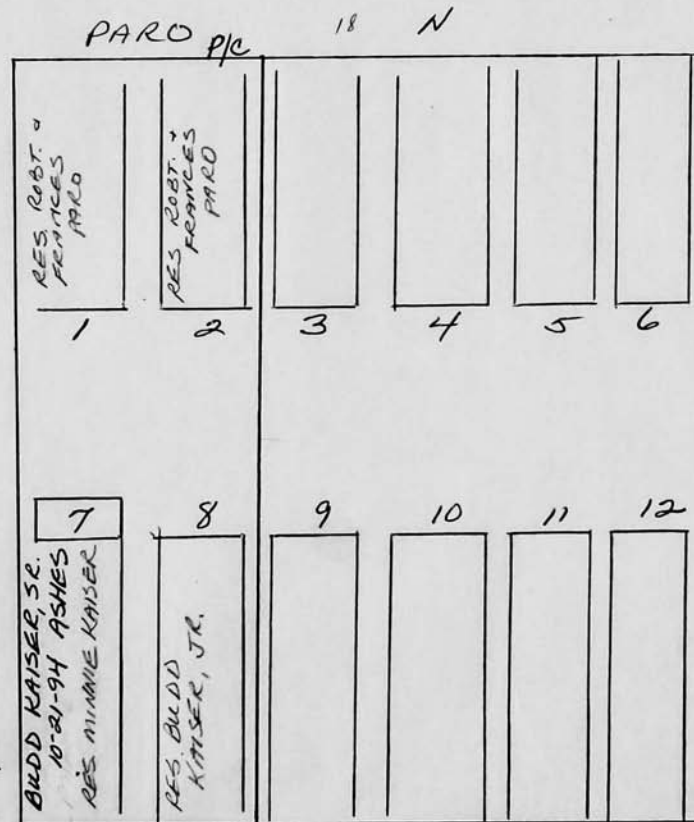 PARO P/C 18 N
RES. ROBT. &
FRANCES
PARO
RES. ROBT. &
FRANCES
PARO
1 2 3 4 5 6
7 8 9 10 11 12
BUDD KAISER, SR.
10-21-94 ASHES
RES. MINNIE KAISER
RES. BUDD
KAISER, JR.